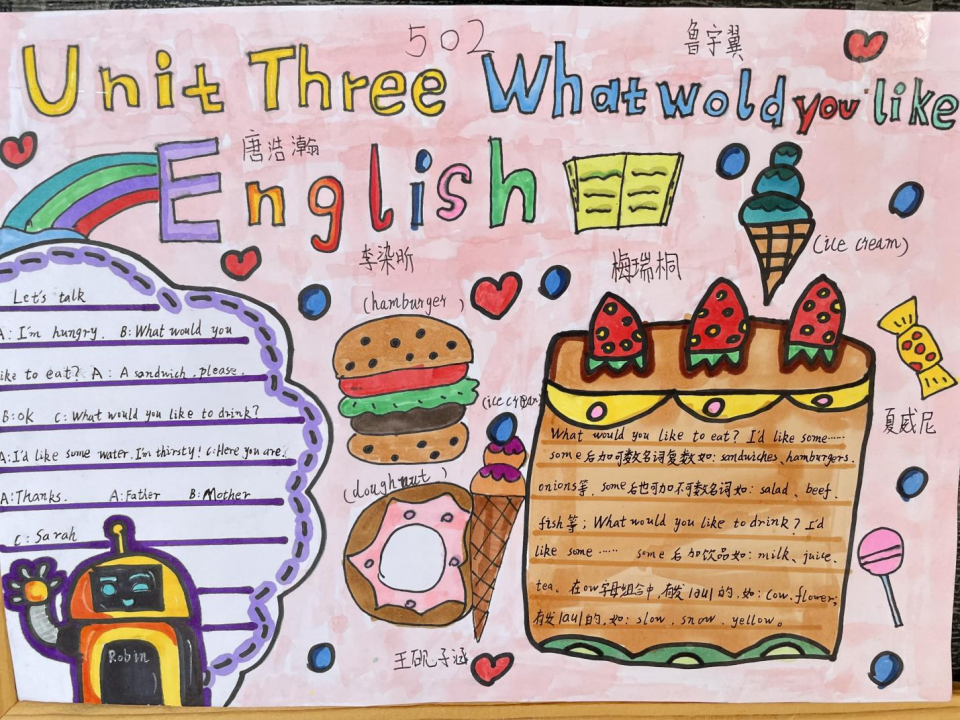 502
鲁宇翼
Unit Three What wold you like
唐浩瀚
English
李染昕
梅瑞桐
(ice cream)
(hamburger)
(ice cream)
(doughnut)
夏威尼
Let's talk
A: I'm hungry. B: What would you
like to eat? A: A sandwich, please.
B: OK C: What would you like to drink?
A: I'd like some water. I'm thirsty! C: Here you are.
A: Thanks. A: Father B: Mother
C: Sarah
Robin
What would you like to eat? I'd like some……
some后加可数名词复数如: sandwiches、hamburgers.
onions等. some后也可加不可数名词如: salad、beef.
fish等; What would you like to drink? I'd
like some …… some后加饮品如: milk、juice.
tea. 在ow字母组合中,有发/au/的,如: cow、flower;
有发/au/的,如: slow、snow、yellow。
王 子涵